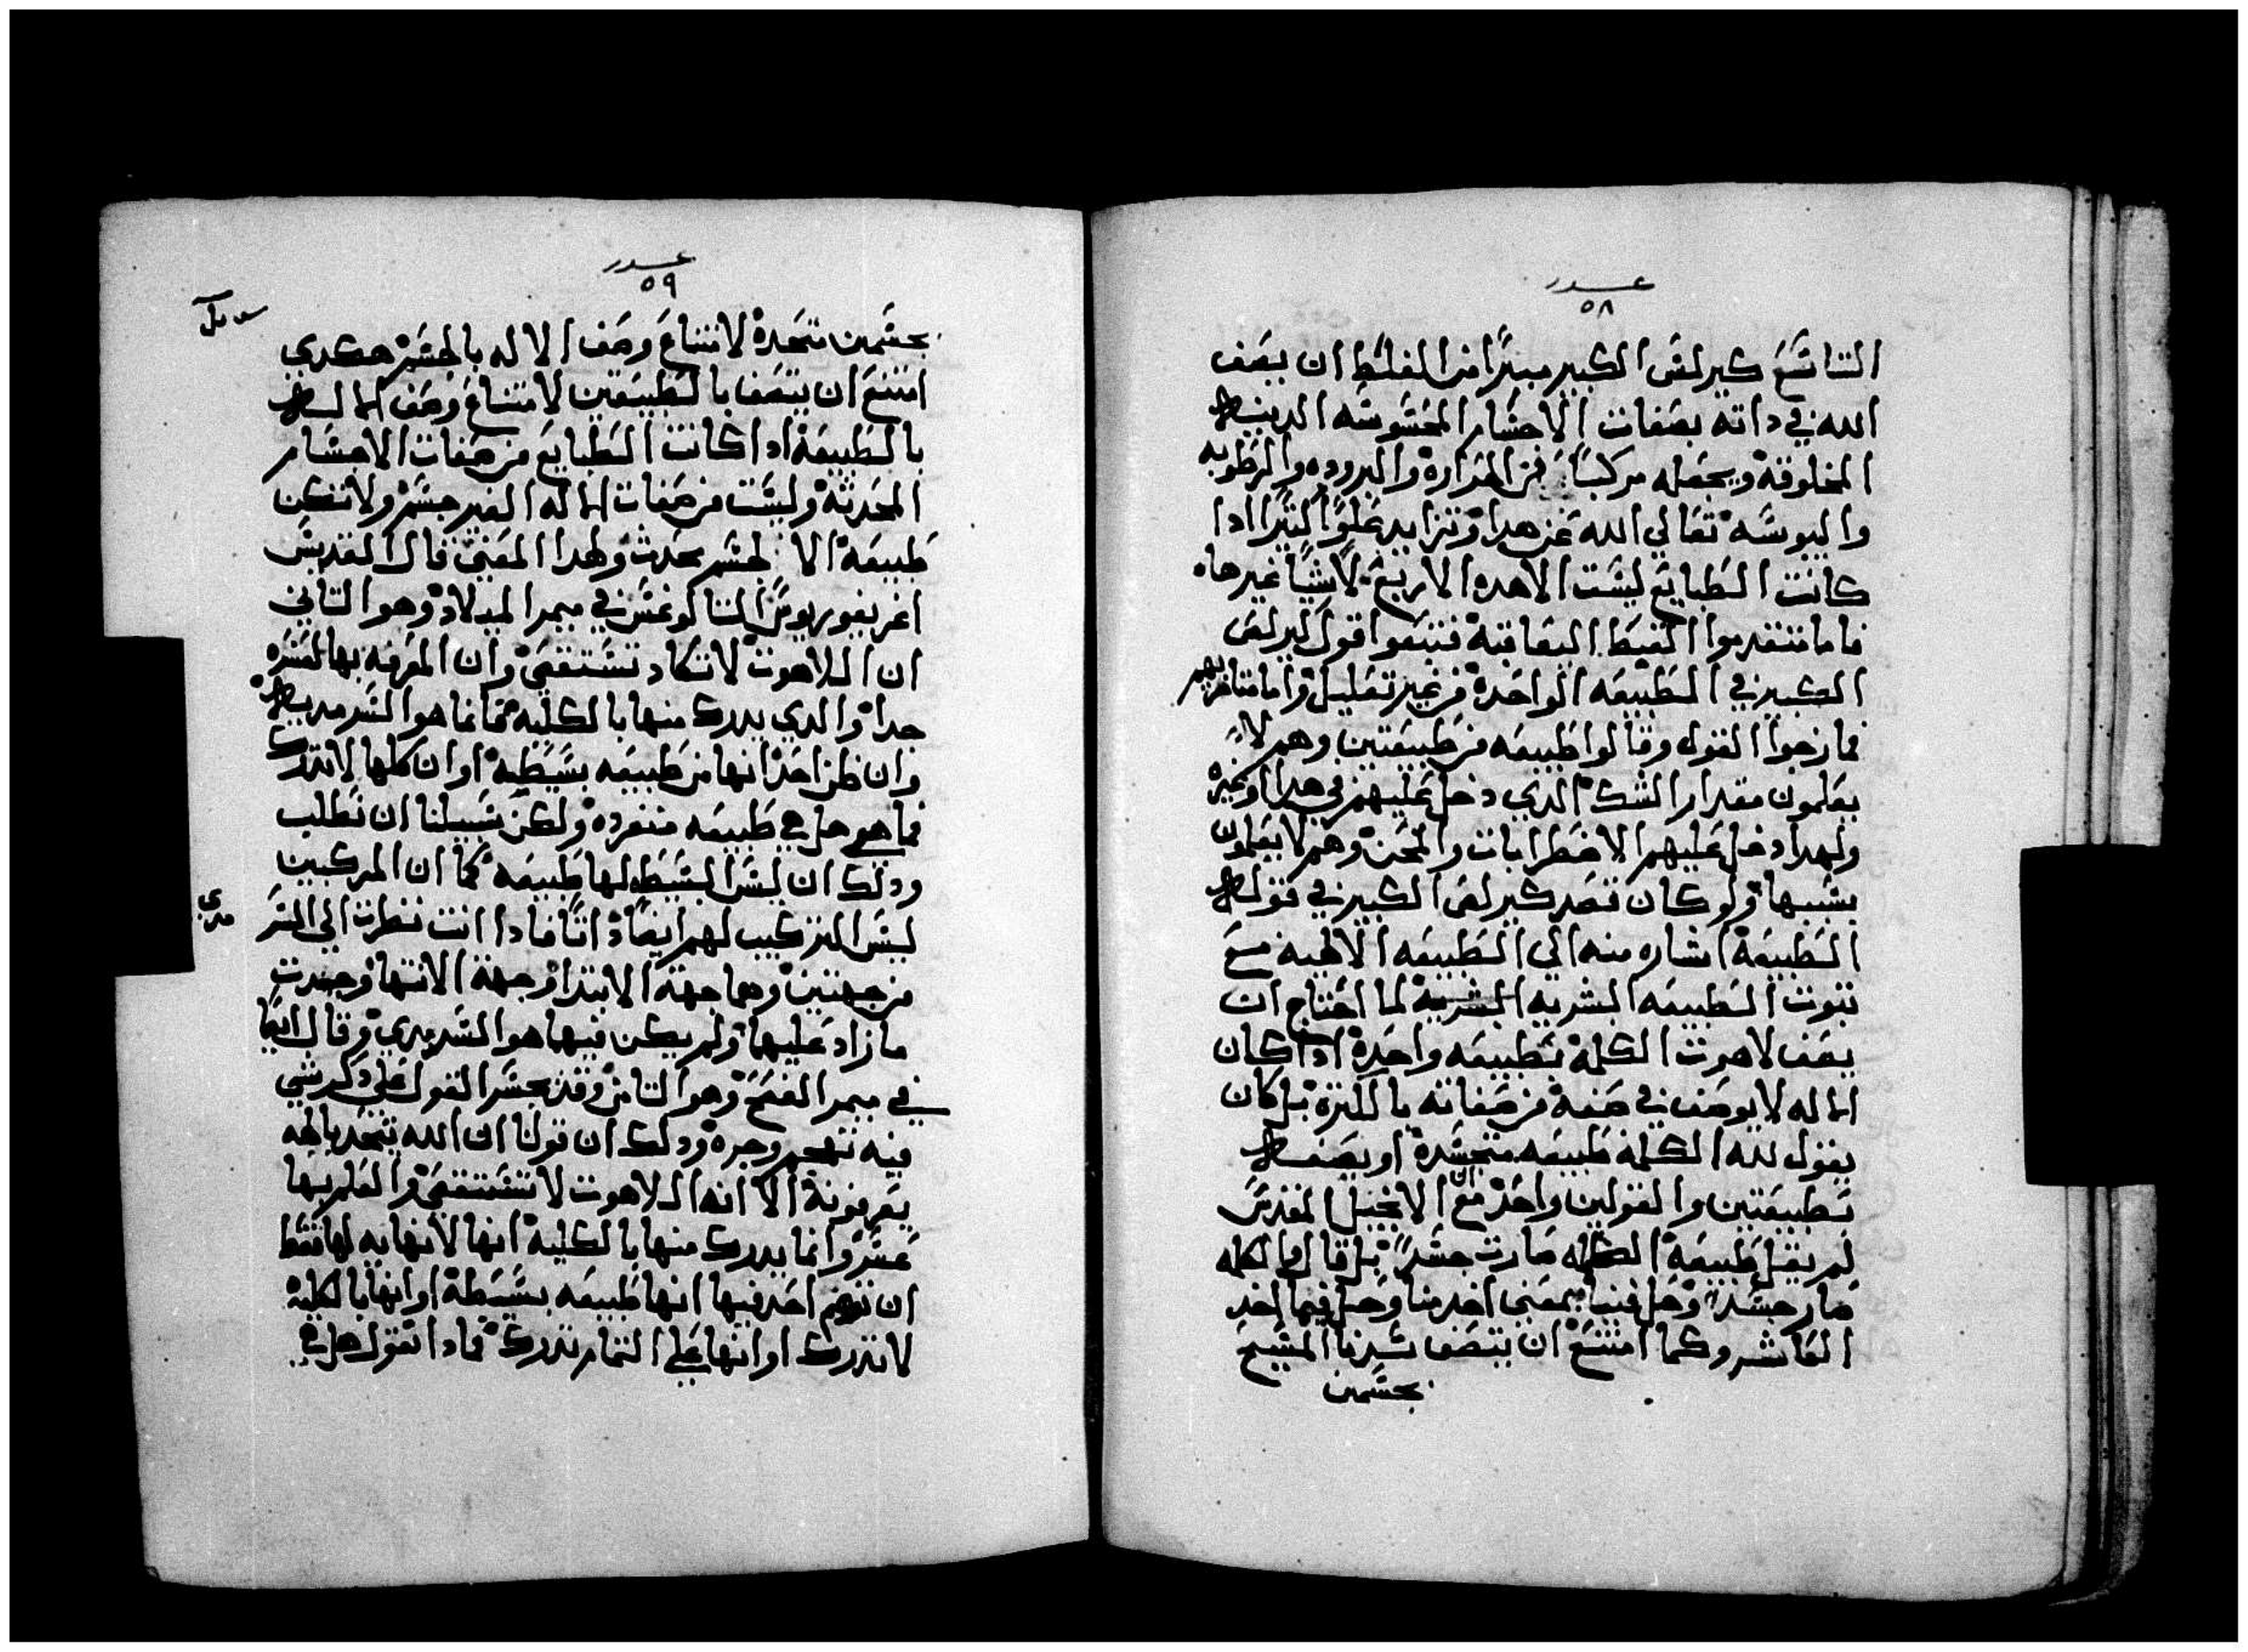 عدد
٥٨
التاسع كيرلص الكبير مبترا من الغلط ان يصف
الله في داته بصفات الاجسام المحسوسه الدينيه
المخلوقة ويجعله مركباً من الحرارة والبروده والرطوبه
واليبوسه تعالي الله عن هدا وتزايد علواً كتيرا ادا
كانت الطبايع ليست الا هده الاربع لا شياً غيرها
فاما متقدموا القبط اليعاقبة فتبعوا قول كيرلص
الكبير في الطبيعه الواحدة من غير تعليل واما متاخريهم
فمازجوا القول وقالوا طبيعه من طبيعتين وهم لا
يعلمون مقدار الشك الدي دخل عليهم في هدا وغيره
ولهدا دخل عليهم الاضطرابات والمحن وهم لا يعلمون
بسببها ولو كان قصد كيرلص الكبير في قوله
الطبيعة اشاره منه الي الطبيعه الالهيه مع
تبوت الطبيعه البشريه البشرية لما احتاج ان
يصف لاهوت الكلمة بطبيعه واحدة ادا كان
الاله لا يوصف في صفة من صفاته بالكترة بل كان
يقول لله الكلمة طبيعه متجسدة او يصفه
بطبيعتين والقولين واحد مع ان الانجيل المقدس
لم يقل طبيعة الكلمه صارت جسداً بل قال ان الكلمه
صار جسداً وحل فينا بمعني اخد منا وحل فيما اخد
العاشر وكما امتنع ان يتصف سيدنا المسيح
بجسمين
عدد
٥٩
بجسمين متحدة لامتناع وصف الاله بالجسم هكدي
امتنع ان يتصف بالطبيعتين لامتناع وصف الاله
بالطبيعة ادا كانت الطبايع من صفات الاجسام
المحدثة وليست من صفات الاله الغير جسم ولا تكن
طبيعة الا لجسم محدث ولهدا المعني قال القديس
اغريغوريوس التاكوغس في ميمر الميلاد وهو التاني
ان اللاهوت لا تكاد تستقصي وان المعرفه بها لعسره
جدا والدي يدرك منها بالكليه فانما هو السرمديه
وان ظن احد انها من طبيعه بسيطه او ان كلها لا تدرك
فما هو حل هي طبيعه منفرده ولكن سبيلنا ان نطلب
ودلك ان ليس البسيط لها طبيعه كما ان المركبين
ليس التركيب لهم ايضاً داتاً فادا انت نظرت الي السر
مدي
من جهتين وهما جهة الابتدا وجهة الانتها وجدت
ما زاد عليها ولم يكن فيها هو السرمدي وقال ايضا
في ميمر الفصح وهو التامن وقد يجسر القول علي دكر شي
فيه تهجم وجره ودلك ان قولنا ان الله يتحد بالهه
يعرفونة الا انه اللاهوت لا تستقصي والعلم بها
عسر وانما يدرك منها بالكلية انها لا نهايه لها فقط
ان توهم احد فيها انها طبيعه بسيطة او انها بالكلية
لا تدرك او انها علي التمام تدرك فمادا تقول هل هي